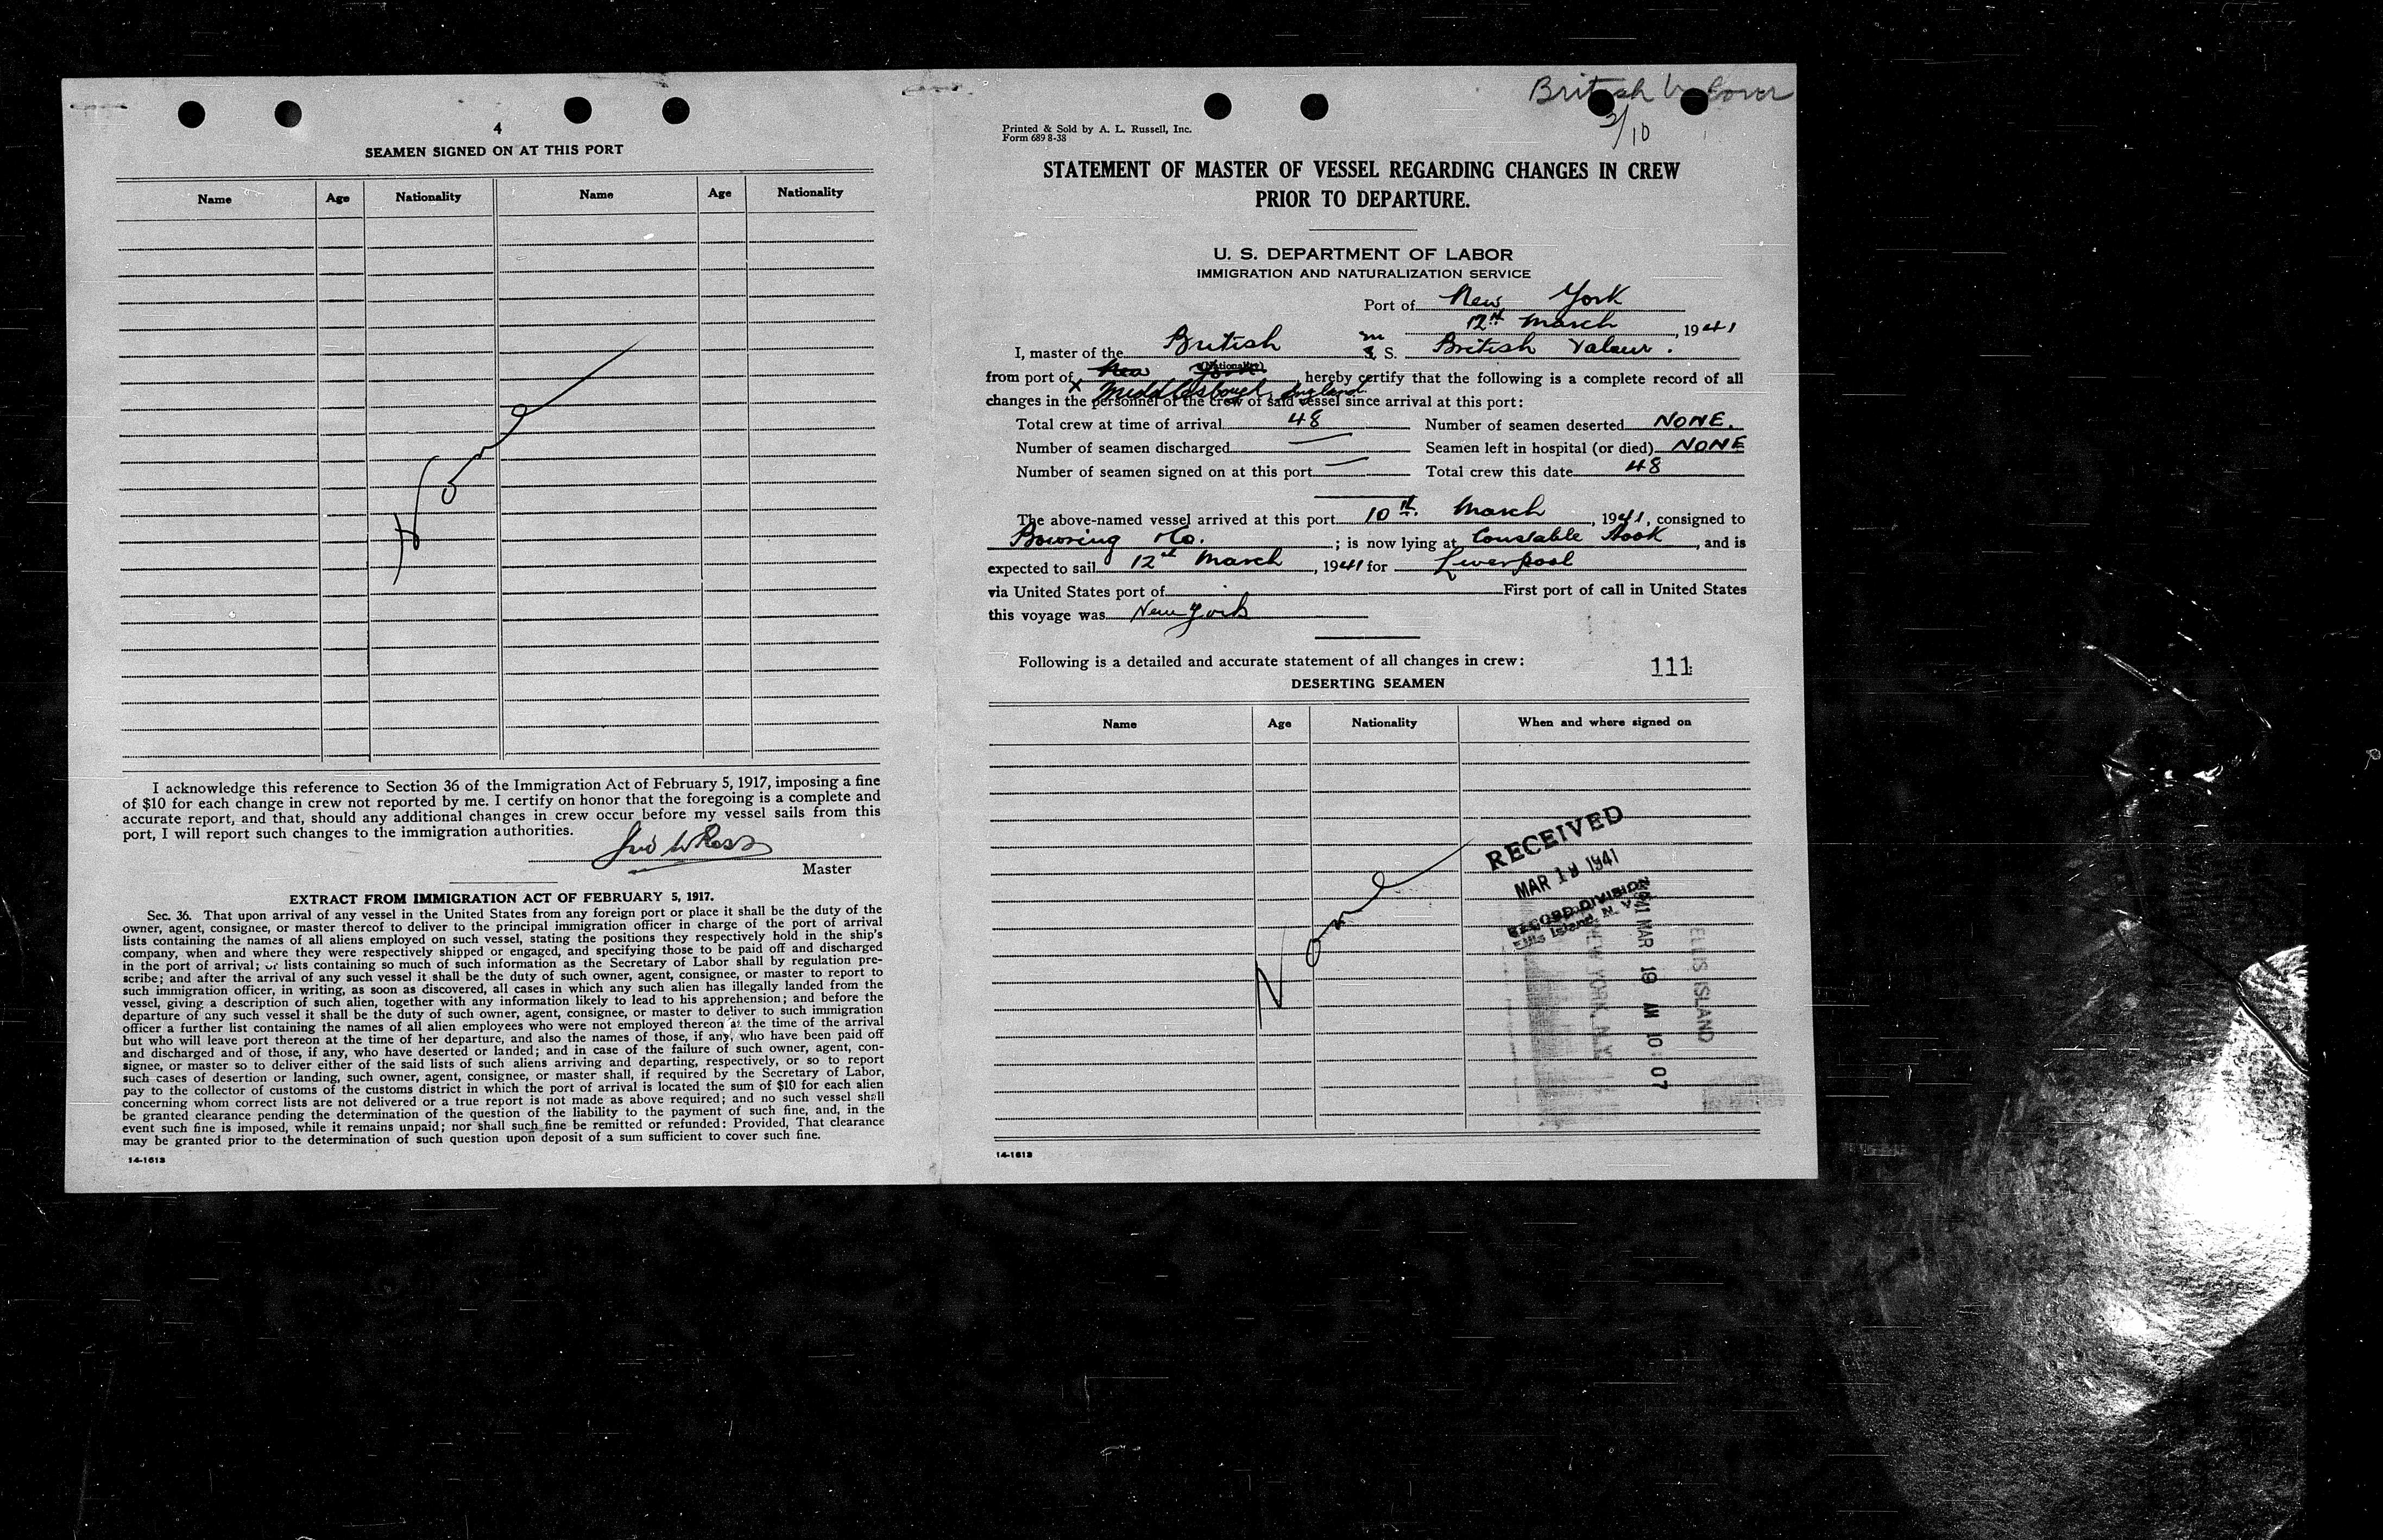 4
SEAMEN SIGNED ON AT THIS PORT
Name Age Nationality Name Age Nationality
None
I acknowledge this reference to Section 36 of the Immigration Act of February 5, 1917, imposing a fine
of $10 for each change in crew not reported by me. I certify on honor that the foregoing is a complete and
accurate report, and that, should any additional changes in crew occur before my vessel sails from this
port, I will report such changes to the immigration authorities.
Jno W Ross
Master
EXTRACT FROM IMMIGRATION ACT OF FEBRUARY 5, 1917.
Sec. 36. That upon arrival of any vessel in the United States from any foreign port or place it shall be the duty of the
owner, agent, consignee, or master thereof to deliver to the principal immigration officer in charge of the port of arrival
lists containing the names of all aliens employed on such vessel, stating the positions they respectively hold in the ship's
company, when and where they were respectively shipped or engaged, and specifying those to be paid off and discharged
in the port of arrival; or lists containing so much of such information as the Secretary of Labor shall by regulation pre-
scribe; and after the arrival of any such vessel it shall be the duty of such owner, agent, consignee, or master to report to
such immigration officer, in writing, as soon as discovered, all cases in which any such alien has illegally landed from the
vessel, giving a description of such alien, together with any information likely to lead to his apprehension; and before the
departure of any such vessel it shall be the duty of such owner, agent, consignee, or master to deliver to such immigration
officer a further list containing the names of all alien employees who were not employed thereon at the time of the arrival
but who will leave port thereon at the time of her departure, and also the names of those, if any, who have been paid off
and discharged and of those, if any, who have deserted or landed; and in case of the failure of such owner, agent, con-
signee, or master so to deliver either of the said lists of such aliens arriving and departing, respectively, or so to report
such cases of desertion or landing, such owner, agent, consignee, or master shall, if required by the Secretary of Labor,
pay to the collector of customs of the customs district in which the port of arrival is located the sum of $10 for each alien
concerning whom correct lists are not delivered or a true report is not made as above required; and no such vessel shall
be granted clearance pending the determination of the question of the liability to the payment of such fine, and, in the
event such fine is imposed, while it remains unpaid; nor shall such fine be remitted or refunded: Provided, That clearance
may be granted prior to the determination of such question upon deposit of a sum sufficient to cover such fine.
14-1613
British
3/10
Printed & Sold by A. L. Russell, Inc.
Form 689 8-38
STATEMENT OF MASTER OF VESSEL REGARDING CHANGES IN CREW
PRIOR TO DEPARTURE.
U. S. DEPARTMENT OF LABOR
IMMIGRATION AND NATURALIZATION SERVICE
Port of New York
12th March, 1941
I, master of the British M S. British Valour.
(Nationality)
from port of New York hereby certify that the following is a complete record of all
x Middlesbough, England
changes in the personnel of the crew of said vessel since arrival at this port:
Total crew at time of arrival 48 Number of seamen deserted NONE.
Number of seamen discharged — Seamen left in hospital (or died) NONE
Number of seamen signed on at this port — Total crew this date 48
The above-named vessel arrived at this port 10th. March, 1941, consigned to
Bowring & Co.; is now lying at Constable Hook, and is
expected to sail 12th March, 1941 for Liverpool
via United States port of First port of call in United States
this voyage was New York
Following is a detailed and accurate statement of all changes in crew:
111
DESERTING SEAMEN
Name Age Nationality When and where signed on
None
RECEIVED
MAR 19 1941
RECORD DIVISION
Ellis Island, N. Y.
1941 MAR 19 AM 10:07
NEW YORK, N.Y.
ELLIS ISLAND
14-1613